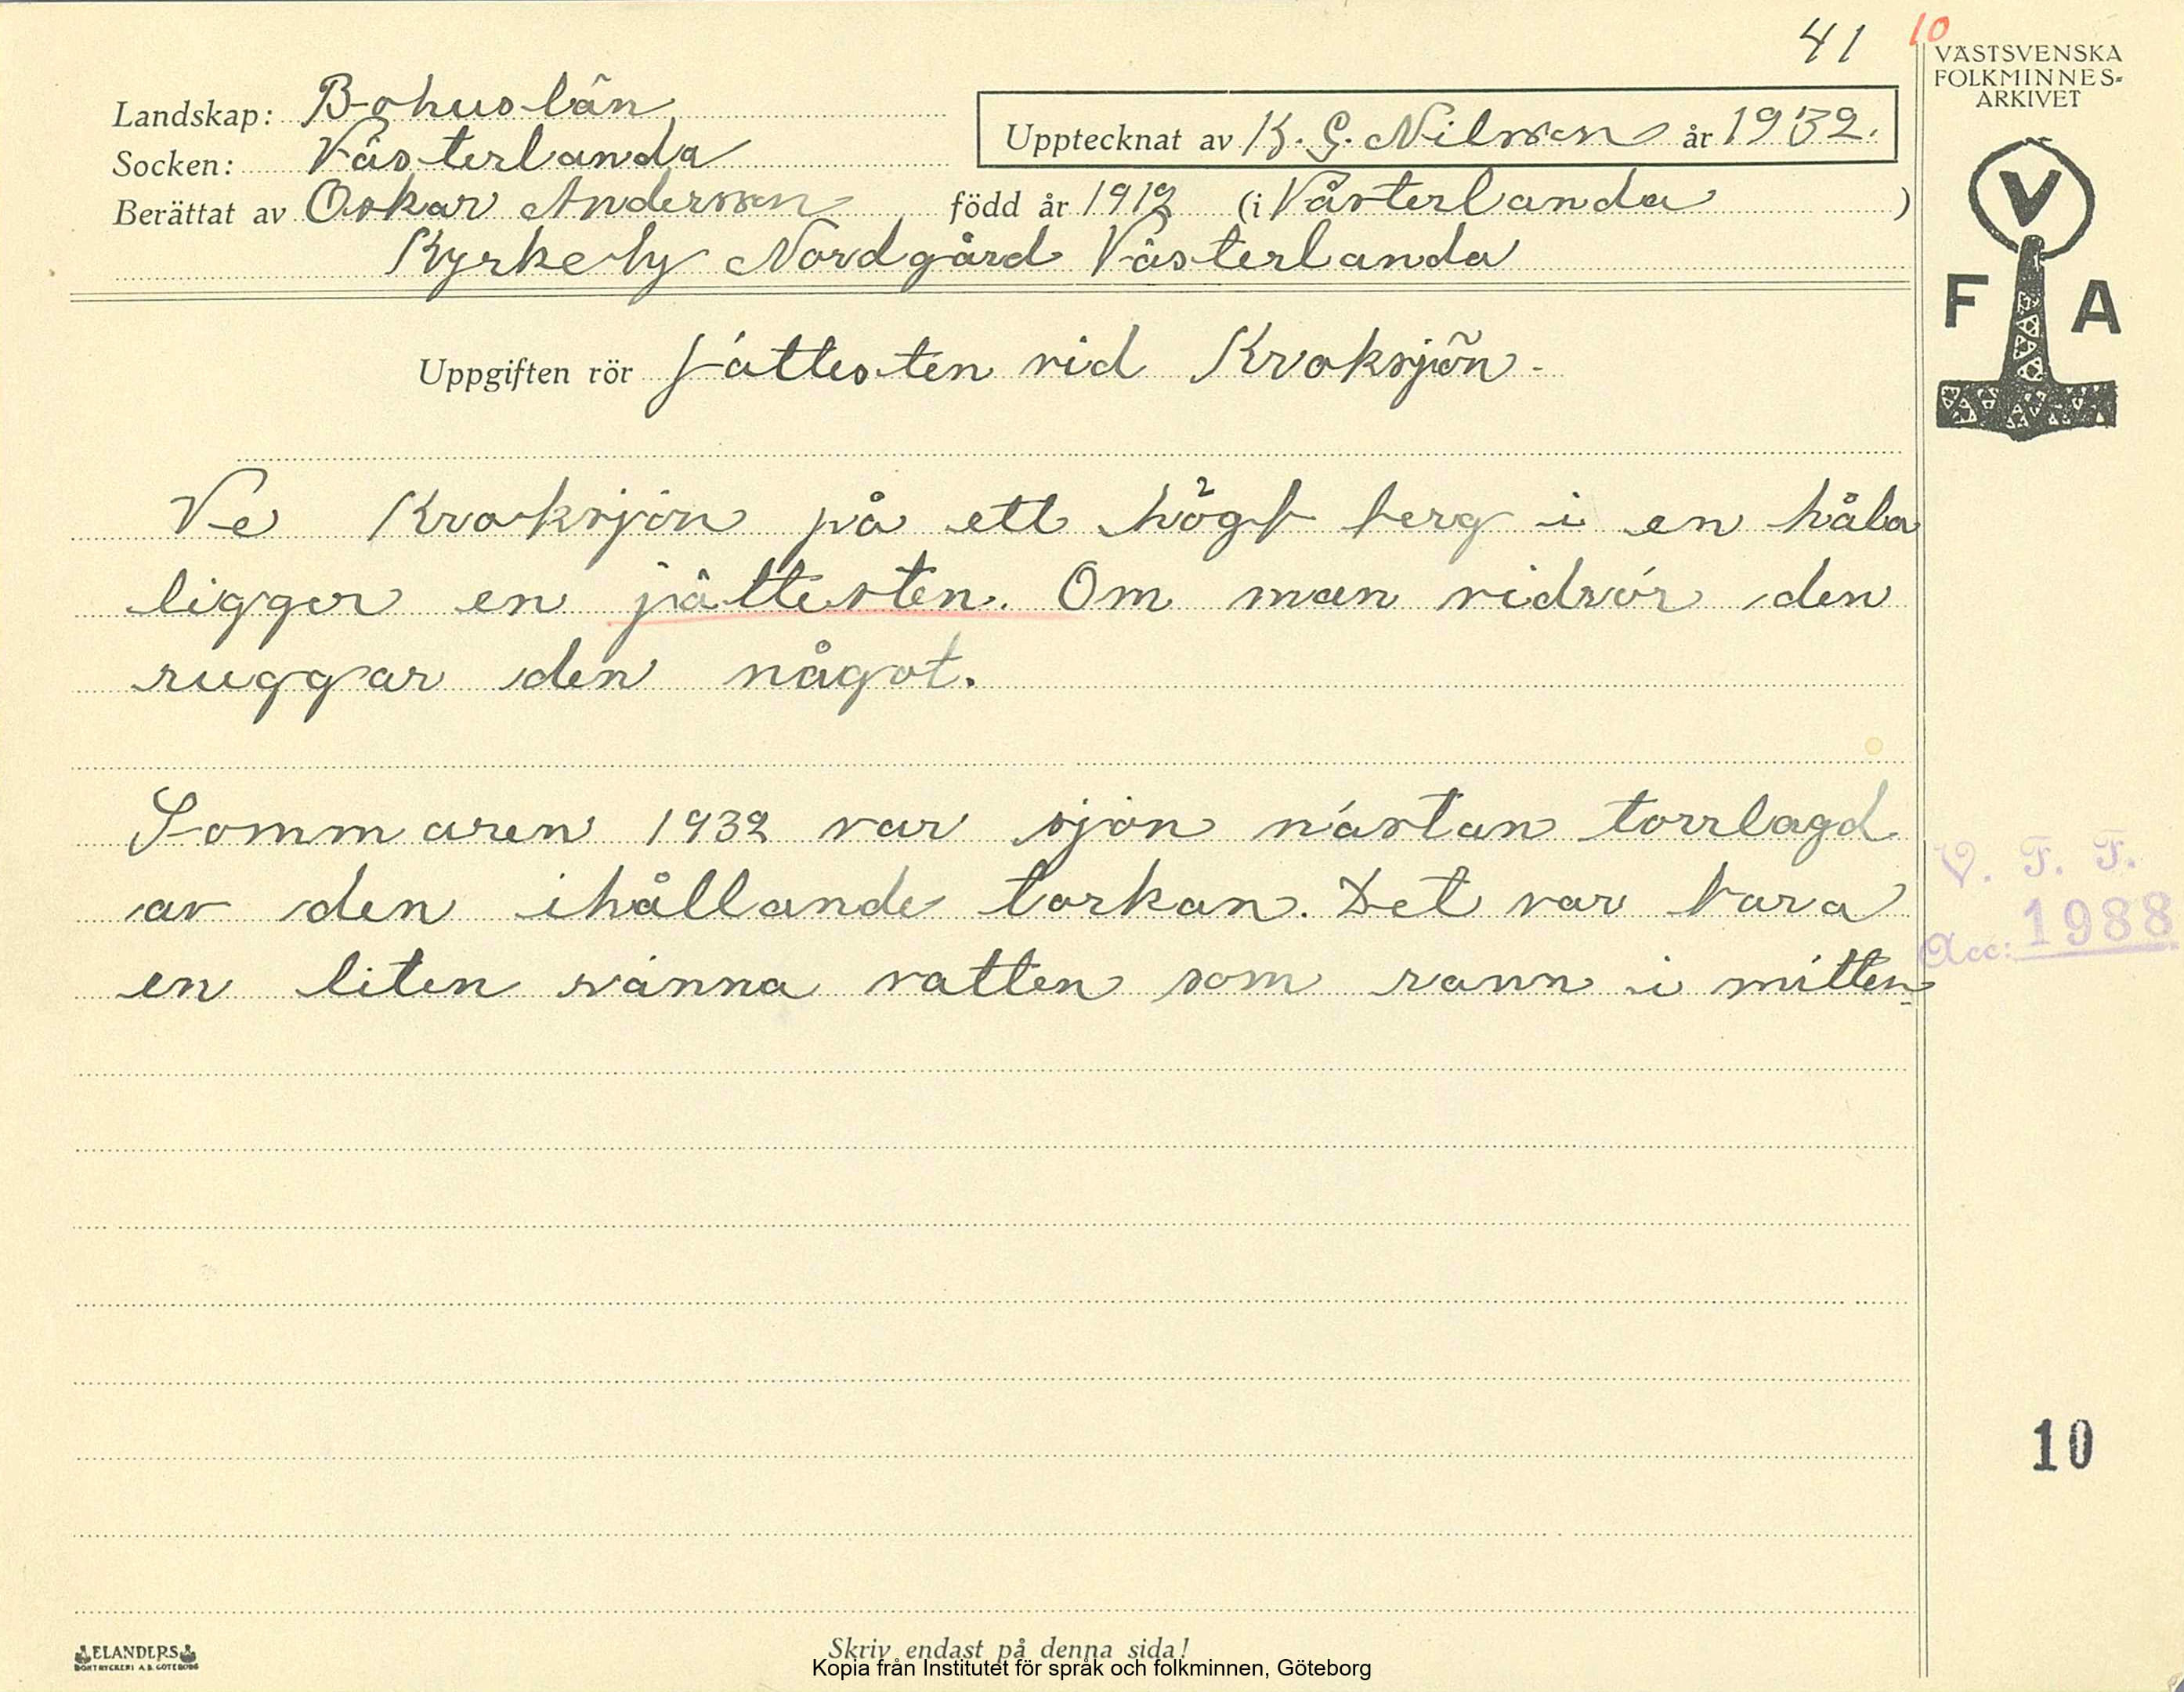 41 10
VÄSTSVENSKA
FOLKMINNES-
ARKIVET
Landskap: Bohuslän
Upptecknat av K. G. Nilsson år 1932.
Socken: Västerlanda
Berättat av Oskar Andersson född år 1912 (i Västerlanda )
Kyrkeby Nordgård Västerlanda
V
F A
Uppgiften rör Jättesten vid Kroksjön.
Ve Kroksjön på ett högt berg i en håla
ligger en jättesten. Om man vidrör den
ruggar den något.
Sommaren 1932 var sjön nästan torrlagd
av den ihållande torkan. Det var bara
en liten ränna vatten som rann i mitten
V. F. F.
Acc: 1988
10
ELANDERS
BOKTRYCKERI A.B. GÖTEBORG
Skriv endast på denna sida!
Kopia från Institutet för språk och folkminnen, Göteborg